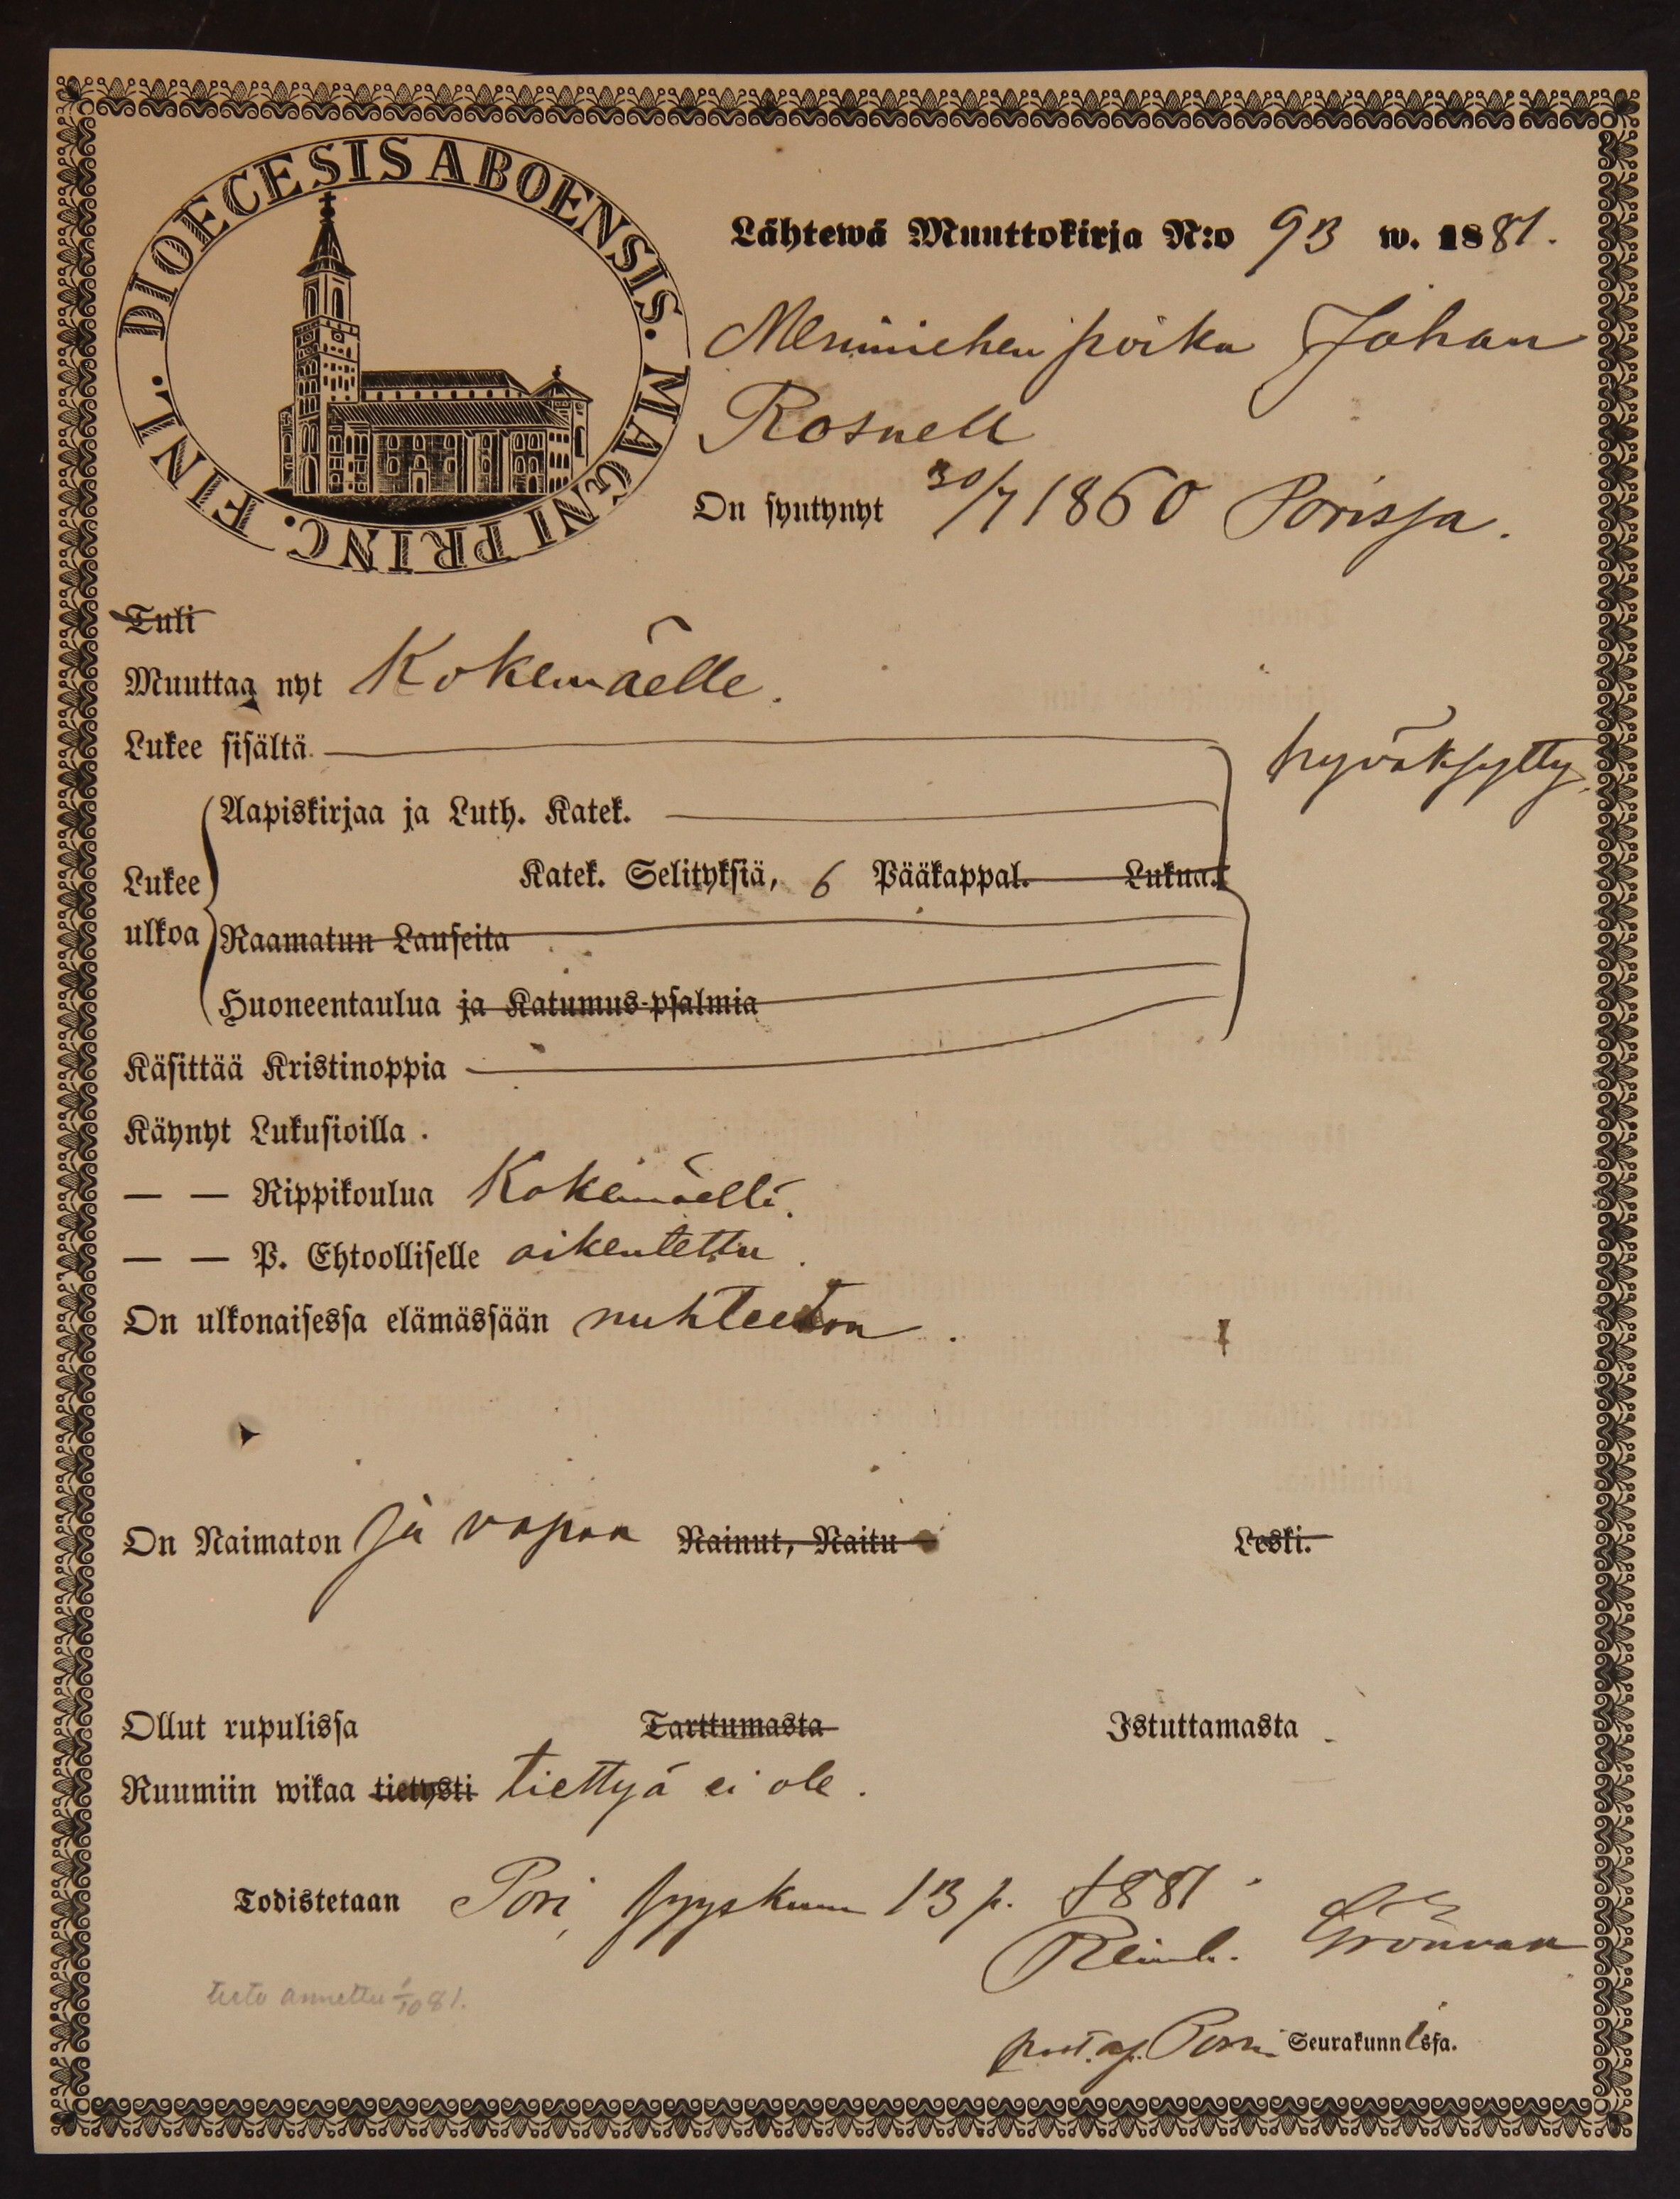 DIOECESIS ABOENSIS. MAGNI PRINC. FINL.
Lähtewä Muuttokirja N:o 93 w. 1881.
Merimiehen poika Johan
Rosnell
On syntynyt 30/7 1860 Porissa.
Tuli
Muuttaa nyt Kokemäelle.
Lukee sisältä hyväksytty.
Aapiskirjaa ja Luth. Katek.
Lukee ulkoa
Katek. Selityksiä, 6 Pääkappal. Lukua.
Raamatun Lauseita
Huoneentaulua ja Katumus-psalmia
Käsittää Kristinoppia
Käynyt Lukusioilla.
— — Rippikoulua Kokemäellä.
— — P. Ehtoolliselle oikeutettu.
On ulkonaisessa elämässään nuhteeton.
On Naimaton ja vapaa Nainut, Naitu Leski.
Ollut rupulissa Tarttumasta Istuttamasta.
Ruumiin wikaa tietysti tiettyä ei ole.
Todistetaan Pori, syyskuun 13 p. 1881.
Reinh. Grönvall
tieto annettu 1/10 81.
past. ap. Porin Seurakunnissa.